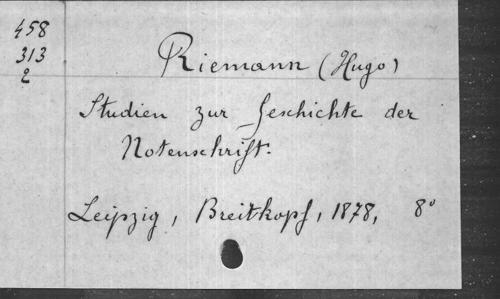 458
313
2
Riemann (Hugo)
Studien zur Geschichte der
Notenschrift.
Leipzig, Breitkopf, 1878, 8°